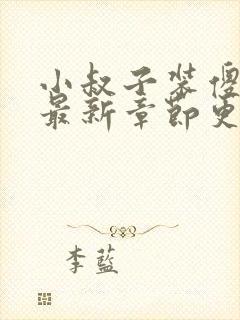 小叔子装傻
最新章节更
李蓝